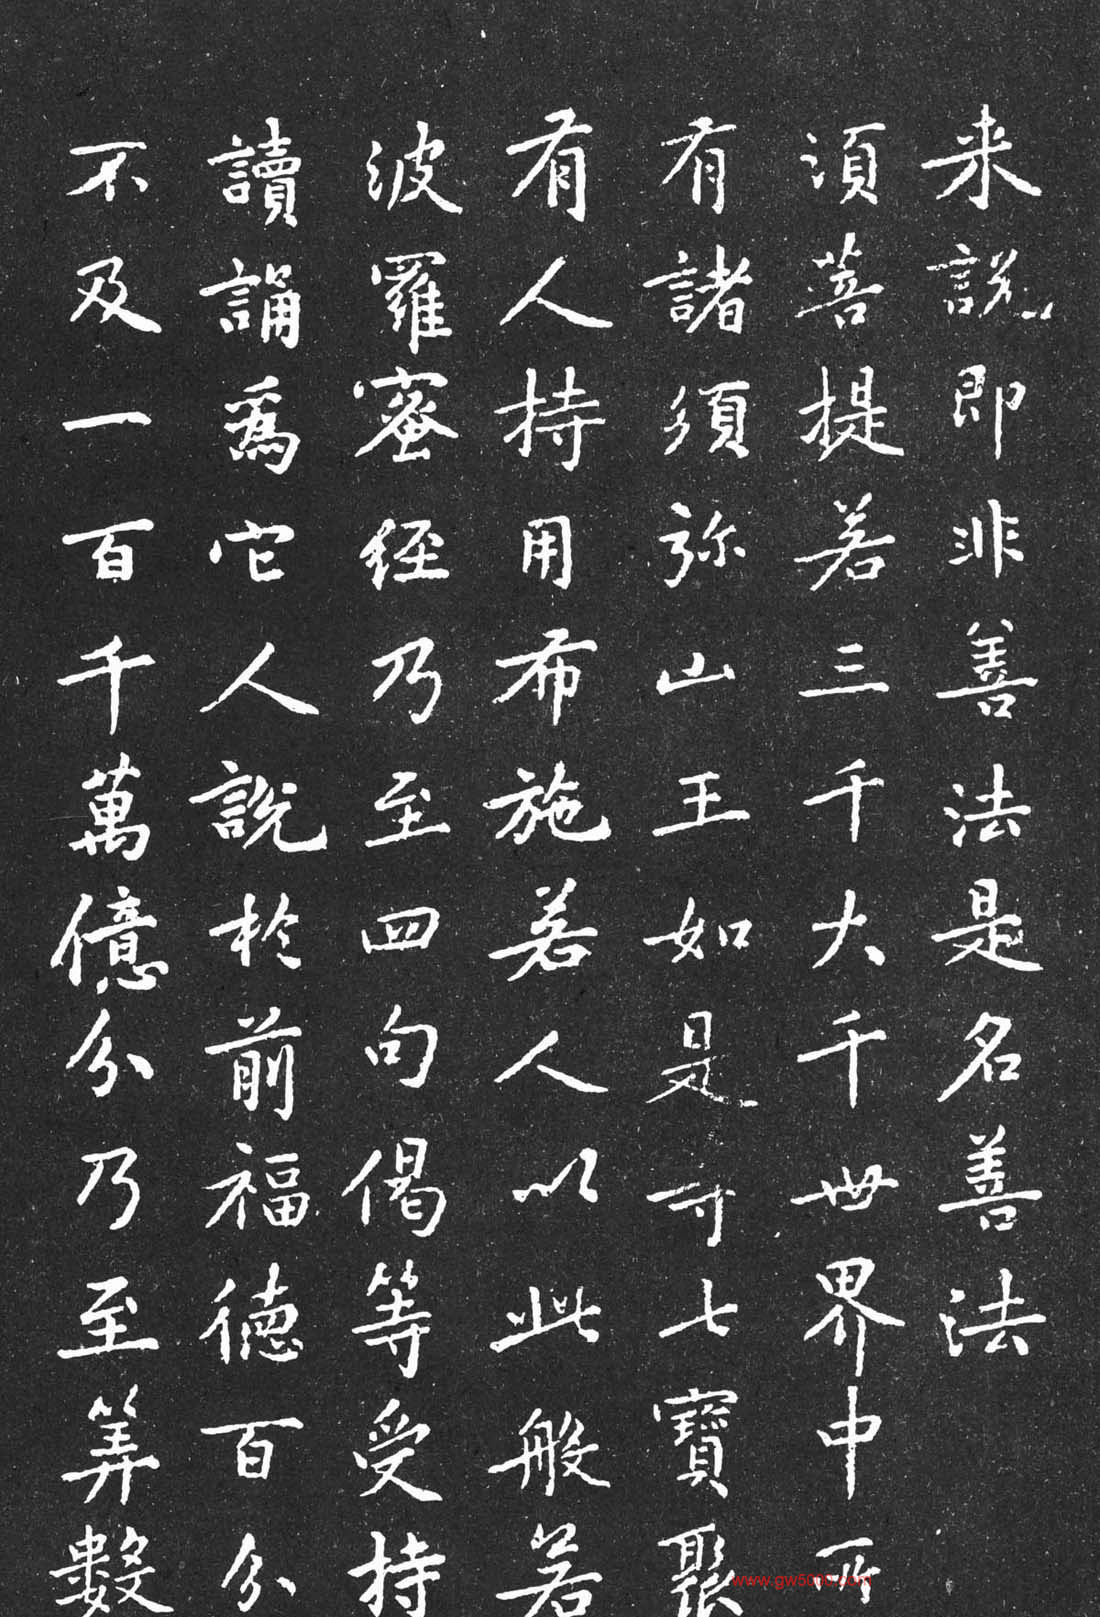 来說即非善法是名善法
須菩提若三千大千世界中所
有諸須弥山王如是等七寶聚
有人持用布施若人以此般若
波羅蜜経乃至四句偈等受持
讀誦為它人說於前福德百分
不及一百千萬億分乃至筭數
www.gw5000.com